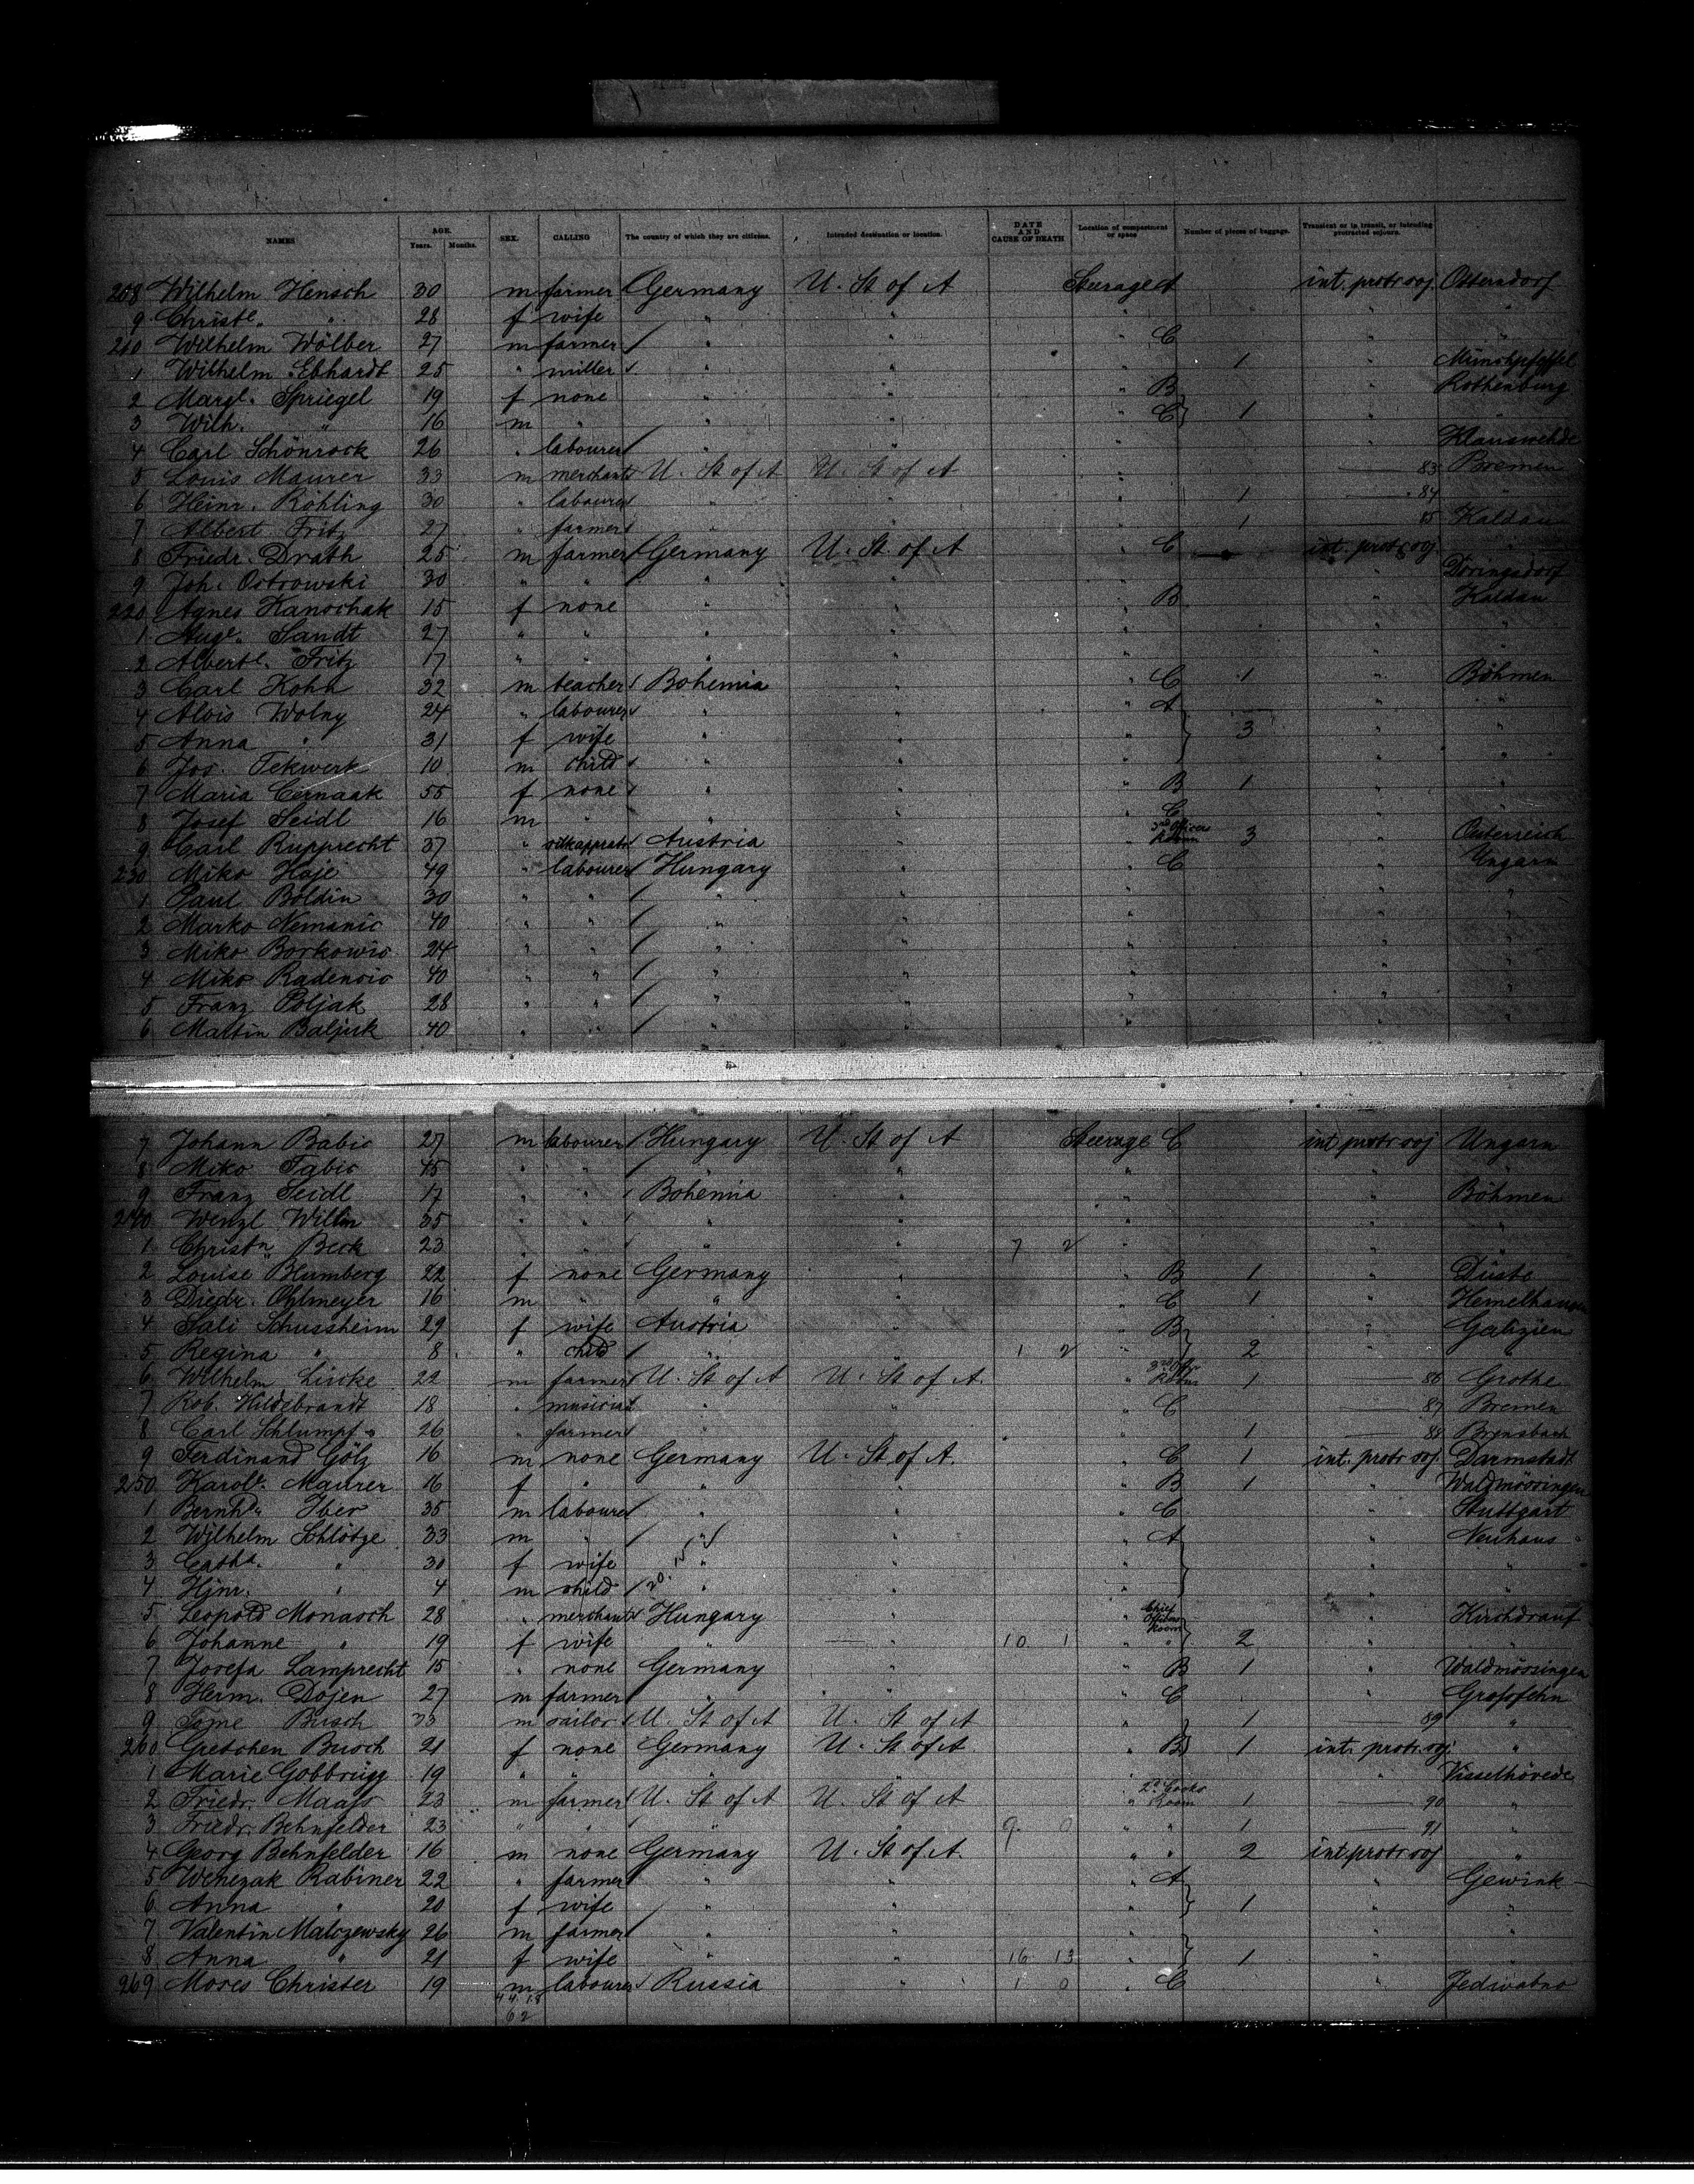 NAMES AGE. Years. Months. SEX. CALLING The country of which they are citizens. Intended destination or location. DATE AND CAUSE OF DEATH Location of compartment or space Number of pieces of baggage. Transient or in transit, or intending protracted sojourn.
208 Wilhelm Hensch 30 m farmer Germany U. St of A Steerage A int. protr. soj. Otterndorf
9 Christe. " 28 f wife " " " " "
210 Wilhelm Wölber 27 m farmer " " " C " "
1 Wilhelm Ebhardt 25 " miller " " " 1 "
2 Margt. Spriegel 19 f none " " " B " Rothenburg
3 Wilh. " 16 m " " " " C 1 " "
4 Carl Schönrock 26 " labourer " " " "
5 Louis Maurer 33 m merchant U. St of A U. St of A " 83 Bremen
6 Heinr. Röhling 30 " labourer " " " 1 84 "
7 Albert Fritz 27 " farmer " " " 1 85 Kaldau
8 Friedr. Drath 25 m farmer Germany U. St. of A " C int. protr. soj. "
9 Joh. Ostrowski 30 " " " " " " Döringsdorf
220 Agnes Kanochak 15 f none " " " B " Kaldau
1 Auge. Sandt 27 " " " " " " "
2 Alberte. Fritz 17 " " " " " " "
3 Carl Kohn 32 m teacher Bohemia " " C 1 " Böhmen
4 Alois Wolny 24 " labourer " " " A " "
5 Anna " 31 f wife " " " 3 " "
6 Jos. Tekwerk 10 m child " " " " "
7 Maria Cernaak 55 f none " " " B 1 " "
8 Josef Seidl 16 m " " " " C " "
9 Carl Rupprecht 37 " Austria " " 3rd Officer Room 3 " Oesterreich
230 Miko Haje 49 " labourer Hungary " " C " Ungarn
1 Paul Boldin 30 " " " " " " "
2 Marko Nemanic 40 " " " " " " "
3 Miko Borkowic 24 " " " " " " "
4 Miko Radencic 40 " " " " " " "
5 Franz Poljak 28 " " " " " " "
6 Martin Baljuk 40 " " " " " " "
7 Johann Babic 27 m labourer Hungary U. St of A Steerage C int protr soj Ungarn
8 Miko Fabic 45 " " " " " " "
9 Franz Seidl 17 " " Bohemia " " " Böhmen
240 Wenzl Willin 35 " " " " " " "
1 Christn. Beck 23 " " " " 7 2 " " "
2 Louise Blumberg 22 f none Germany " " B 1 " Düste
3 Diedr. Ohlmeyer 16 m " " " " C 1 " Hemelhausen
4 Sali Schussheim 29 f wife Austria " " B " Galizien
5 Regina " 8 " child " " 1 2 " 2 " "
6 Wilhelm Lincke 22 m farmer U. St of A U. St of A. " 3rd Offr Room 1 86 Grothe
7 Rob. Hildebrandt 18 " musician " " " C 87 Bremen
8 Carl Schlumpf 26 " farmer " " " 1 88 Brensbach
9 Ferdinand Gölz 16 m none Germany U. St of A. " C 1 int. protr soj. Darmstadt
250 Karole. Maurer 16 f " " " " B 1 " Waldmössingen
1 Bernhd. Iber 35 m labourer " " " C " Stuttgart
2 Wilhelm Schlötge 33 m " " " " A " Neuhaus
3 Catha. " 30 f wife " " " " "
4 Hjnr. " 4 m child " " " " "
5 Leopold Monasch 28 " merchant Hungary " " Chief Officers Room " Kirchdrauf
6 Johanne " 19 f wife " " 10 1 " " 2 " "
7 Josefa Lamprecht 15 " none Germany " " B 1 " Waldmössingen
8 Herm. Dojen 27 m farmer " " " C " Grossfehn
9 Busch 33 m sailor U. St of A U. St of A " 1 89 "
260 Gretchen Busch 21 f none Germany U. St of A " B 1 int. protr. soj. "
1 Marie Gobbrügg 19 " " " " " " Visselhövede
2 Friedr. Maass 23 m farmer U. St of A U. St of A " 2d Cooks Room 1 90 "
3 Friedr. Behnfelder 23 " " " " 9 0 " " 1 91 "
4 Georg Behnfelder 16 m none Germany U. St of A. " " 2 int protr soj "
5 Wenczak Rabiner 22 " farmer " " " A " Gewink
6 Anna " 20 f wife " " " 1 " "
7 Valentin Malozewsky 26 m farmer " " " " "
8 Anna " 21 f wife " " 16 13 " 1 " "
269 Mores Christer 19 m labourer Russia " 1 0 " C " Jedwabno
44 18
62